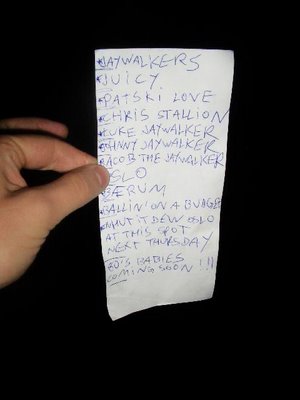 JAYWALKERS
JUICY
PATSKI LOVE
CHRIS STALLION
LUKE JAYWALKER
JOHNNY JAYWALKER
JACOB THE JAYWALKER
OSLO
BÆRUM
BALLIN' ON A BUDGET
DEW OSLO
AT THIS SPOT
NEXT THURSDAY
80'S BABIES
COMING SOON !!!